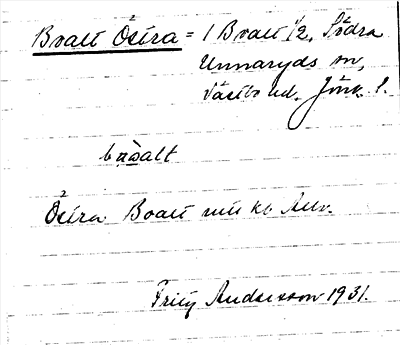 Bralt Östra = 1 Bralt 1/2, Södra
Unnaryds sn,
Västbo hd. Jönk. l.
bràalt
Östra Bralt mtl kb Allv.
Fritz Andersson 1931.